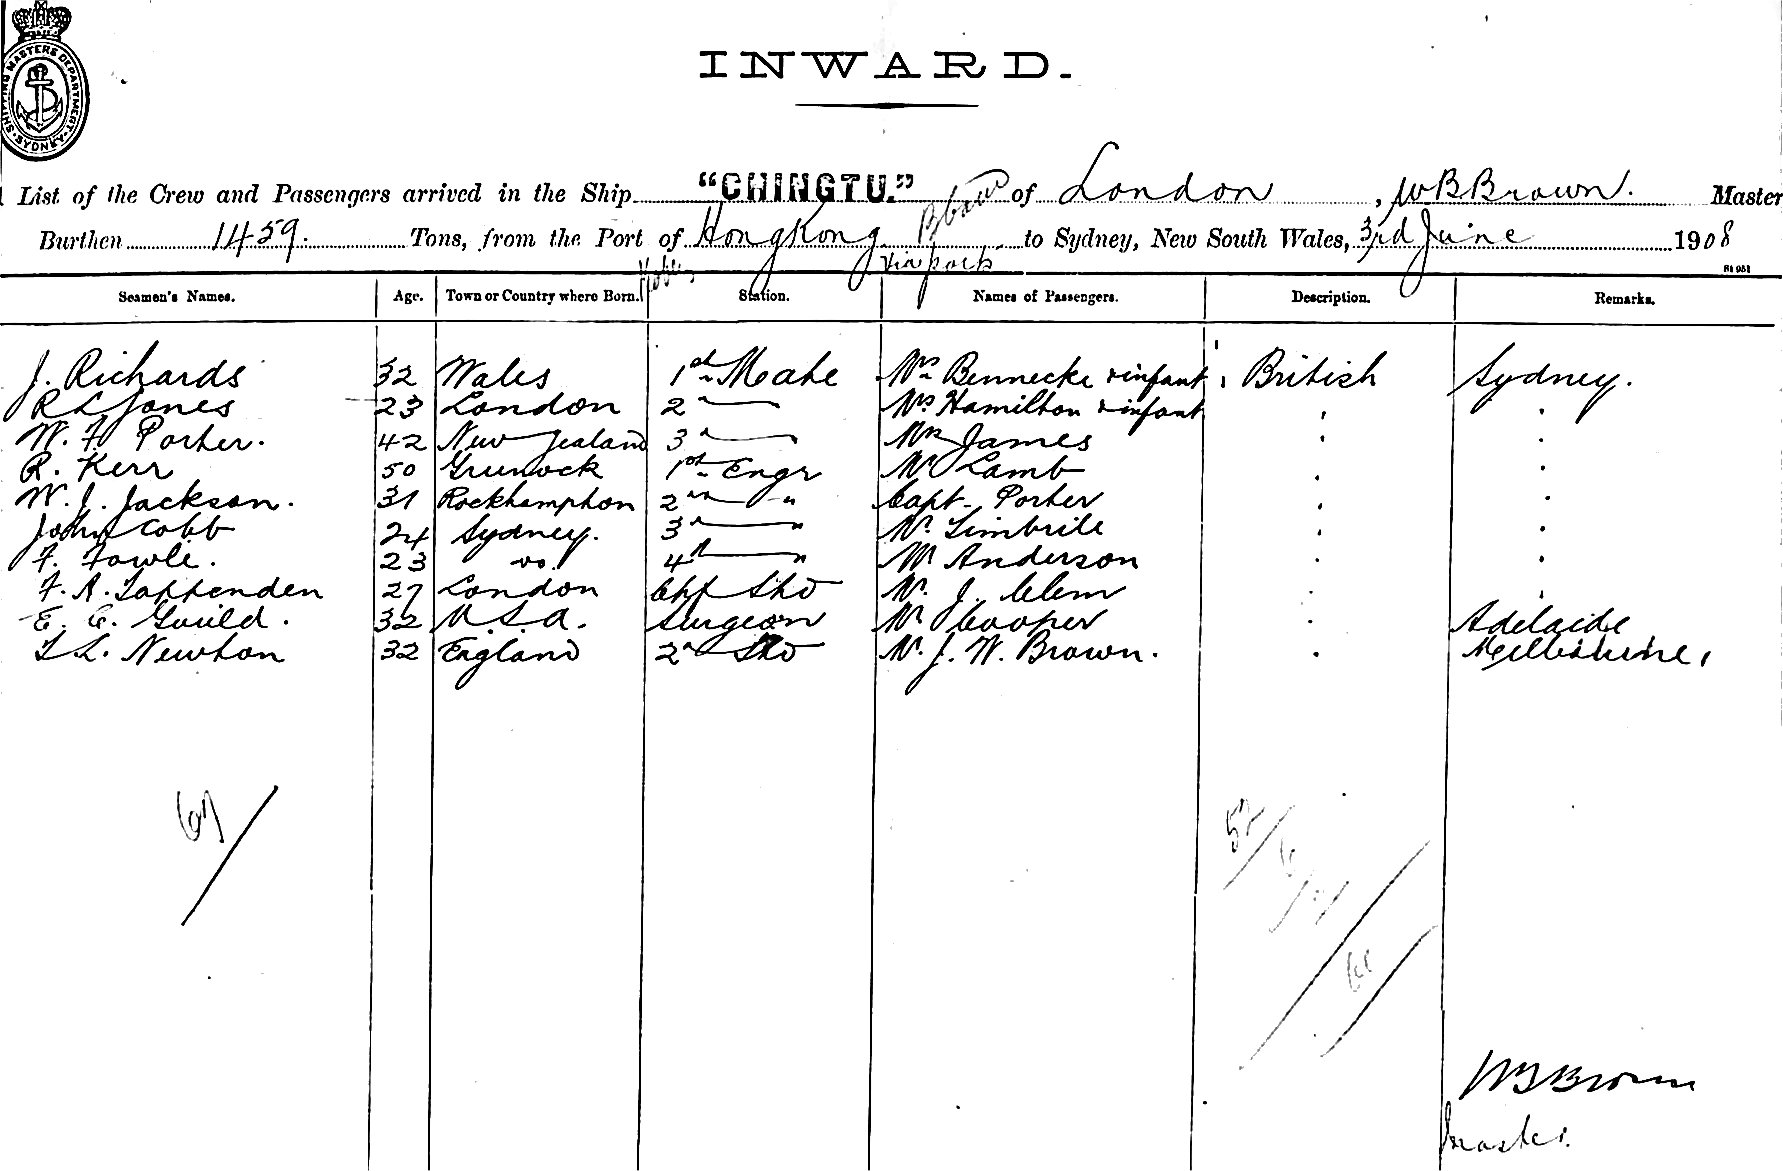 SHIPPING MASTERS DEPARTMENT SYDNEY
INWARD.
List of the Crew and Passengers arrived in the Ship "CHINGTU." of London, W B Brown. Master
Burthen 1459. Tons, from the Port of HongKong to Sydney, New South Wales, 3rd June 1908
via ports
Seamen's Names. Age. Town or Country where Born. Station. Names of Passengers. Description. Remarks.
J. Richards 32 Wales 1st Mate Mrs Bennecke & infant British Sydney.
R L Jones 23 London 2nd Mrs Hamilton & infant
W. F. Porter. 42 New Zealand 3rd Mr James
R. Kerr 50 Greenock 1st Engr Mr Lamb
W. J. Jackson. 31 Rockhampton 2nd " Capt. Porter
John Cobb 24 Sydney. 3rd " Mr. Limbrile
F. Fowle. 23 do. 4th " Mr Anderson
F. A. Tappenden 27 London Chf Std Mr. J. Clem
E. E. Guild. 32 U.S.A. Surgeon Mr Cooper Adelaide
T L. Newton 32 England 2nd Std Mr. J. W. Brown. Melbourne,
67
52
6
W B Brown
Master.